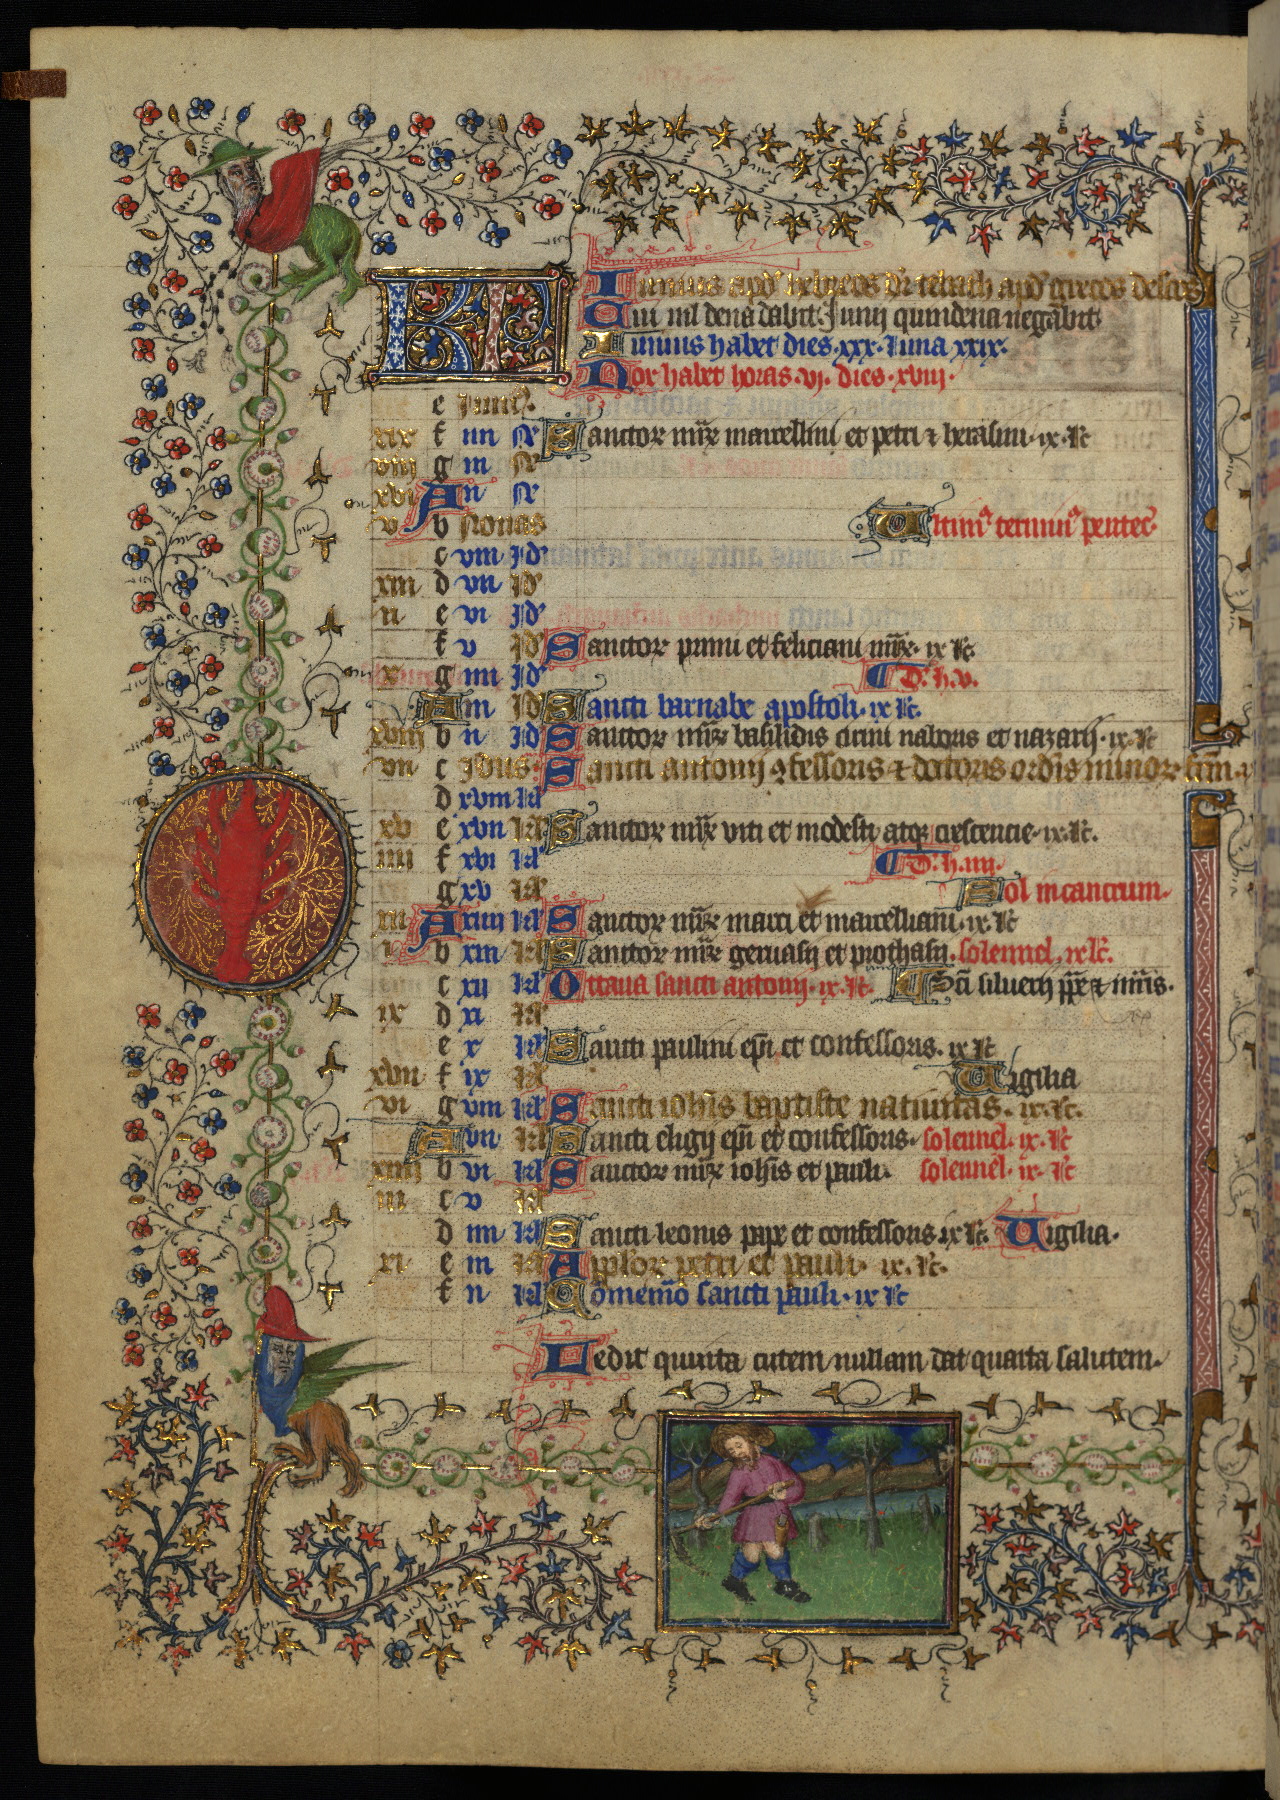 KL
Iunius apd' hebreos dr tebath apd' grecos descos
Cui nil dena dabit. Junij quindena negabit
Iunius habet dies .xxx. luna xxix.
Nox habet horas .vi. dies .xviii.
e Junij.
xix f iiii No Sanctor mr marcellini et petri & herasmi .ix. lc
viii g iii No
xvi A ii No
v b Nonas Ultim9 termin9 pentec.
c viii Id'
xiii d vii Id'
ii e vi Id'
f v Id' Sanctor primi et feliciani mr .ix lc
x g iiii Id' D'. h. v.
A iii Id' Sancti barnabe apostoli .ix lc.
xviii b ii Id Sanctor mr basilidis cirini naboris et nazarij .ix. lc
vii c idus Sancti antonij 9fessoris & doctoris ordis minor
d xviii kl
xv e xvii kl Sanctor mr viti et modesti atq crescencie .ix. lc.
iiii f xvi kl D'. h. iiii.
g xv kl Sol in cancrum.
xii A xiiii kl Sanctor mr marci et marcelliani .ix. lc
i b xiii kl Sanctor mr geruasij et prothasij. solennel. ix lc.
c xii kl Octaua sancti antonij .ix. lc. Sci siluerij ppe & mris.
ix d xi kl
e x kl Sancti paulini epi et confessoris. ix lc
xvii f ix kl Uigilia
vi g viii kl Sancti iohis baptiste natiuitas. ix. lc.
A vii kl Sancti eligij epi et confessoris. solennel. ix. lc
xiiii b vi kl Sanctor mr iohis et pauli. solennel. ix. lc
iii c v kl
d iiii kl Sancti leonis pape et confessoris ix lc. Uigilia.
xi e iii kl Applor petri et pauli. ix. lc.
f ii kl Comemo sancti pauli .ix lc
Dedit quinta cutem nullam dat quarta salutem.